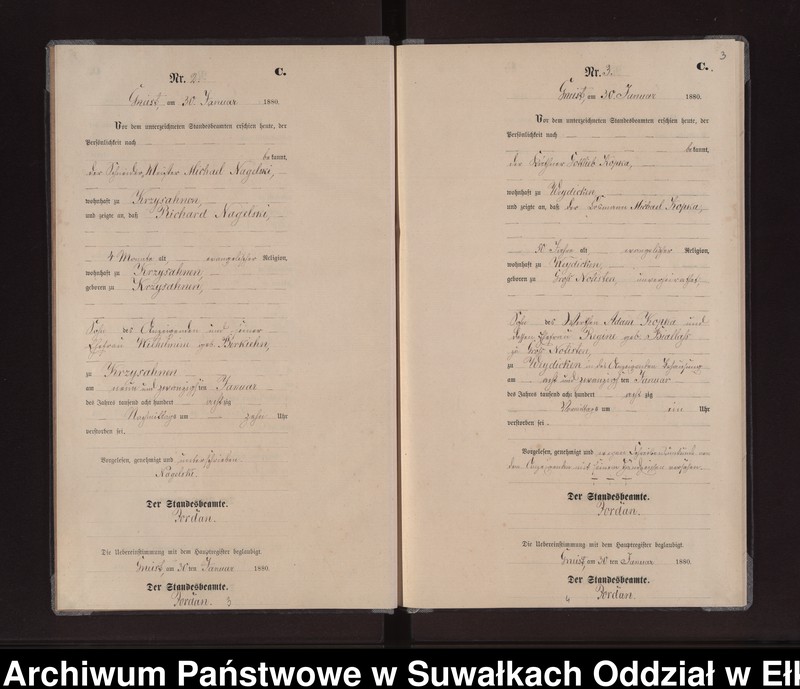 Nr. 2.
C.
Gneist, am 30. Januar 1880.
Vor dem unterzeichneten Standesbeamten erschien heute, der
Persönlichkeit nach
bekannt,
der Schneider, Meister Michael Nagelski,
wohnhaft zu Krzysahnen,
und zeigte an, daß Richard Nagelski,
4 Monate alt evangelischer Religion,
wohnhaft zu Krzysahnen,
geboren zu Krzysahnen,
Sohn des Anzeigenden und seiner
Ehefrau Wilhelmine geb.
zu Krzysahnen
am neun und zwanzigsten Januar
des Jahrs tausend acht hundert achtzig
Nachmittags um zehn Uhr
verstorben sei.
Vorgelesen, genehmigt und unterschrieben
Nagelski.
Der Standesbeamte.
Jordan.
Die Uebereinstimmung mit dem Hauptregister beglaubigt.
Gneist, am 30 ten Januar 1880.
Der Standesbeamte.
Jordan.
3
3
Nr. 3.
C.
Gneist, am 30. Januar 1880.
Vor dem unterzeichneten Standesbeamten erschien heute, der
Persönlichkeit nach
bekannt,
der Gottlieb Kopka,
wohnhaft zu Weydicken,
und zeigte an, daß der Losmann Michael Kopka,
50 Jahre alt evangelischer Religion,
wohnhaft zu Weydicken,
geboren zu Groß Notisten, unverheirathet
Sohn des Adam Kopka und
dessen Ehefrau Regine geb.
zu Groß Notisten,
zu Weydicken in des Anzeigenden Behausung
am acht und zwanzigsten Januar
des Jahrs tausend acht hundert achtzig
Vormittags um ein Uhr
verstorben sei.
Vorgelesen, genehmigt und wegen Schreibensunkunde von
dem Anzeigenden mit seinem Handzeichen versehen.
+ + +
Der Standesbeamte.
Jordan.
Die Uebereinstimmung mit dem Hauptregister beglaubigt.
Gneist, am 30 ten Januar 1880.
Der Standesbeamte.
Jordan.
4
Archiwum Państwowe w Suwałkach Oddział w Ełk